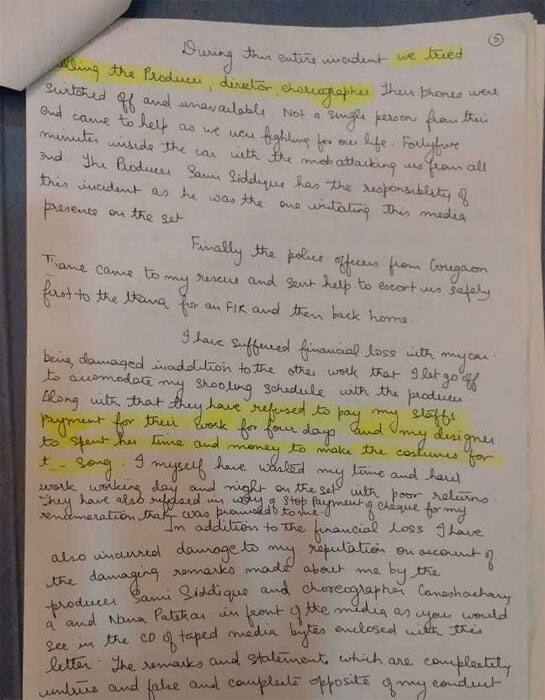 5
During this entire incident we tried
calling the Producer, director, choreographer Their phones were
switched off and unavailable. Not a single person from their
end came to help as we were fighting for our life. Fortyfive
minutes inside the car with the mob attacking us from all
end. The Producer Sami Siddique has the responsibility of
this incident as he was the one initiating this media
presence on the set
Finally the police officers from Goregaon
Thane came to my rescue and sent help to escort us safely
first to the thana for an FIR and then back home.
I have suffered financial loss with my car
being damaged inaddition to the other work that I let go off
to accomodate my shooting schedule with the producer.
Along with that they have refused to pay my staffs
payment for their work for four days and my designer
to spent her time and money to make the costumes for
song. I myself have wasted my time and hard
work working day and night on the set with poor returns.
They have also refused in way of stop payment of cheque for my
renumeration that was promised to me.
In addition to the financial loss I have
also incurred damage to my reputation on account of
the damaging remarks made about me by the
producer Sami Siddique and choreographer Ganeshachary
a and Nana Patekar in front of the media as you would
see in the CD of taped media bytes enclosed with this
letter. The remarks and statements which are completely
untrue and fake and complete opposite of my conduct